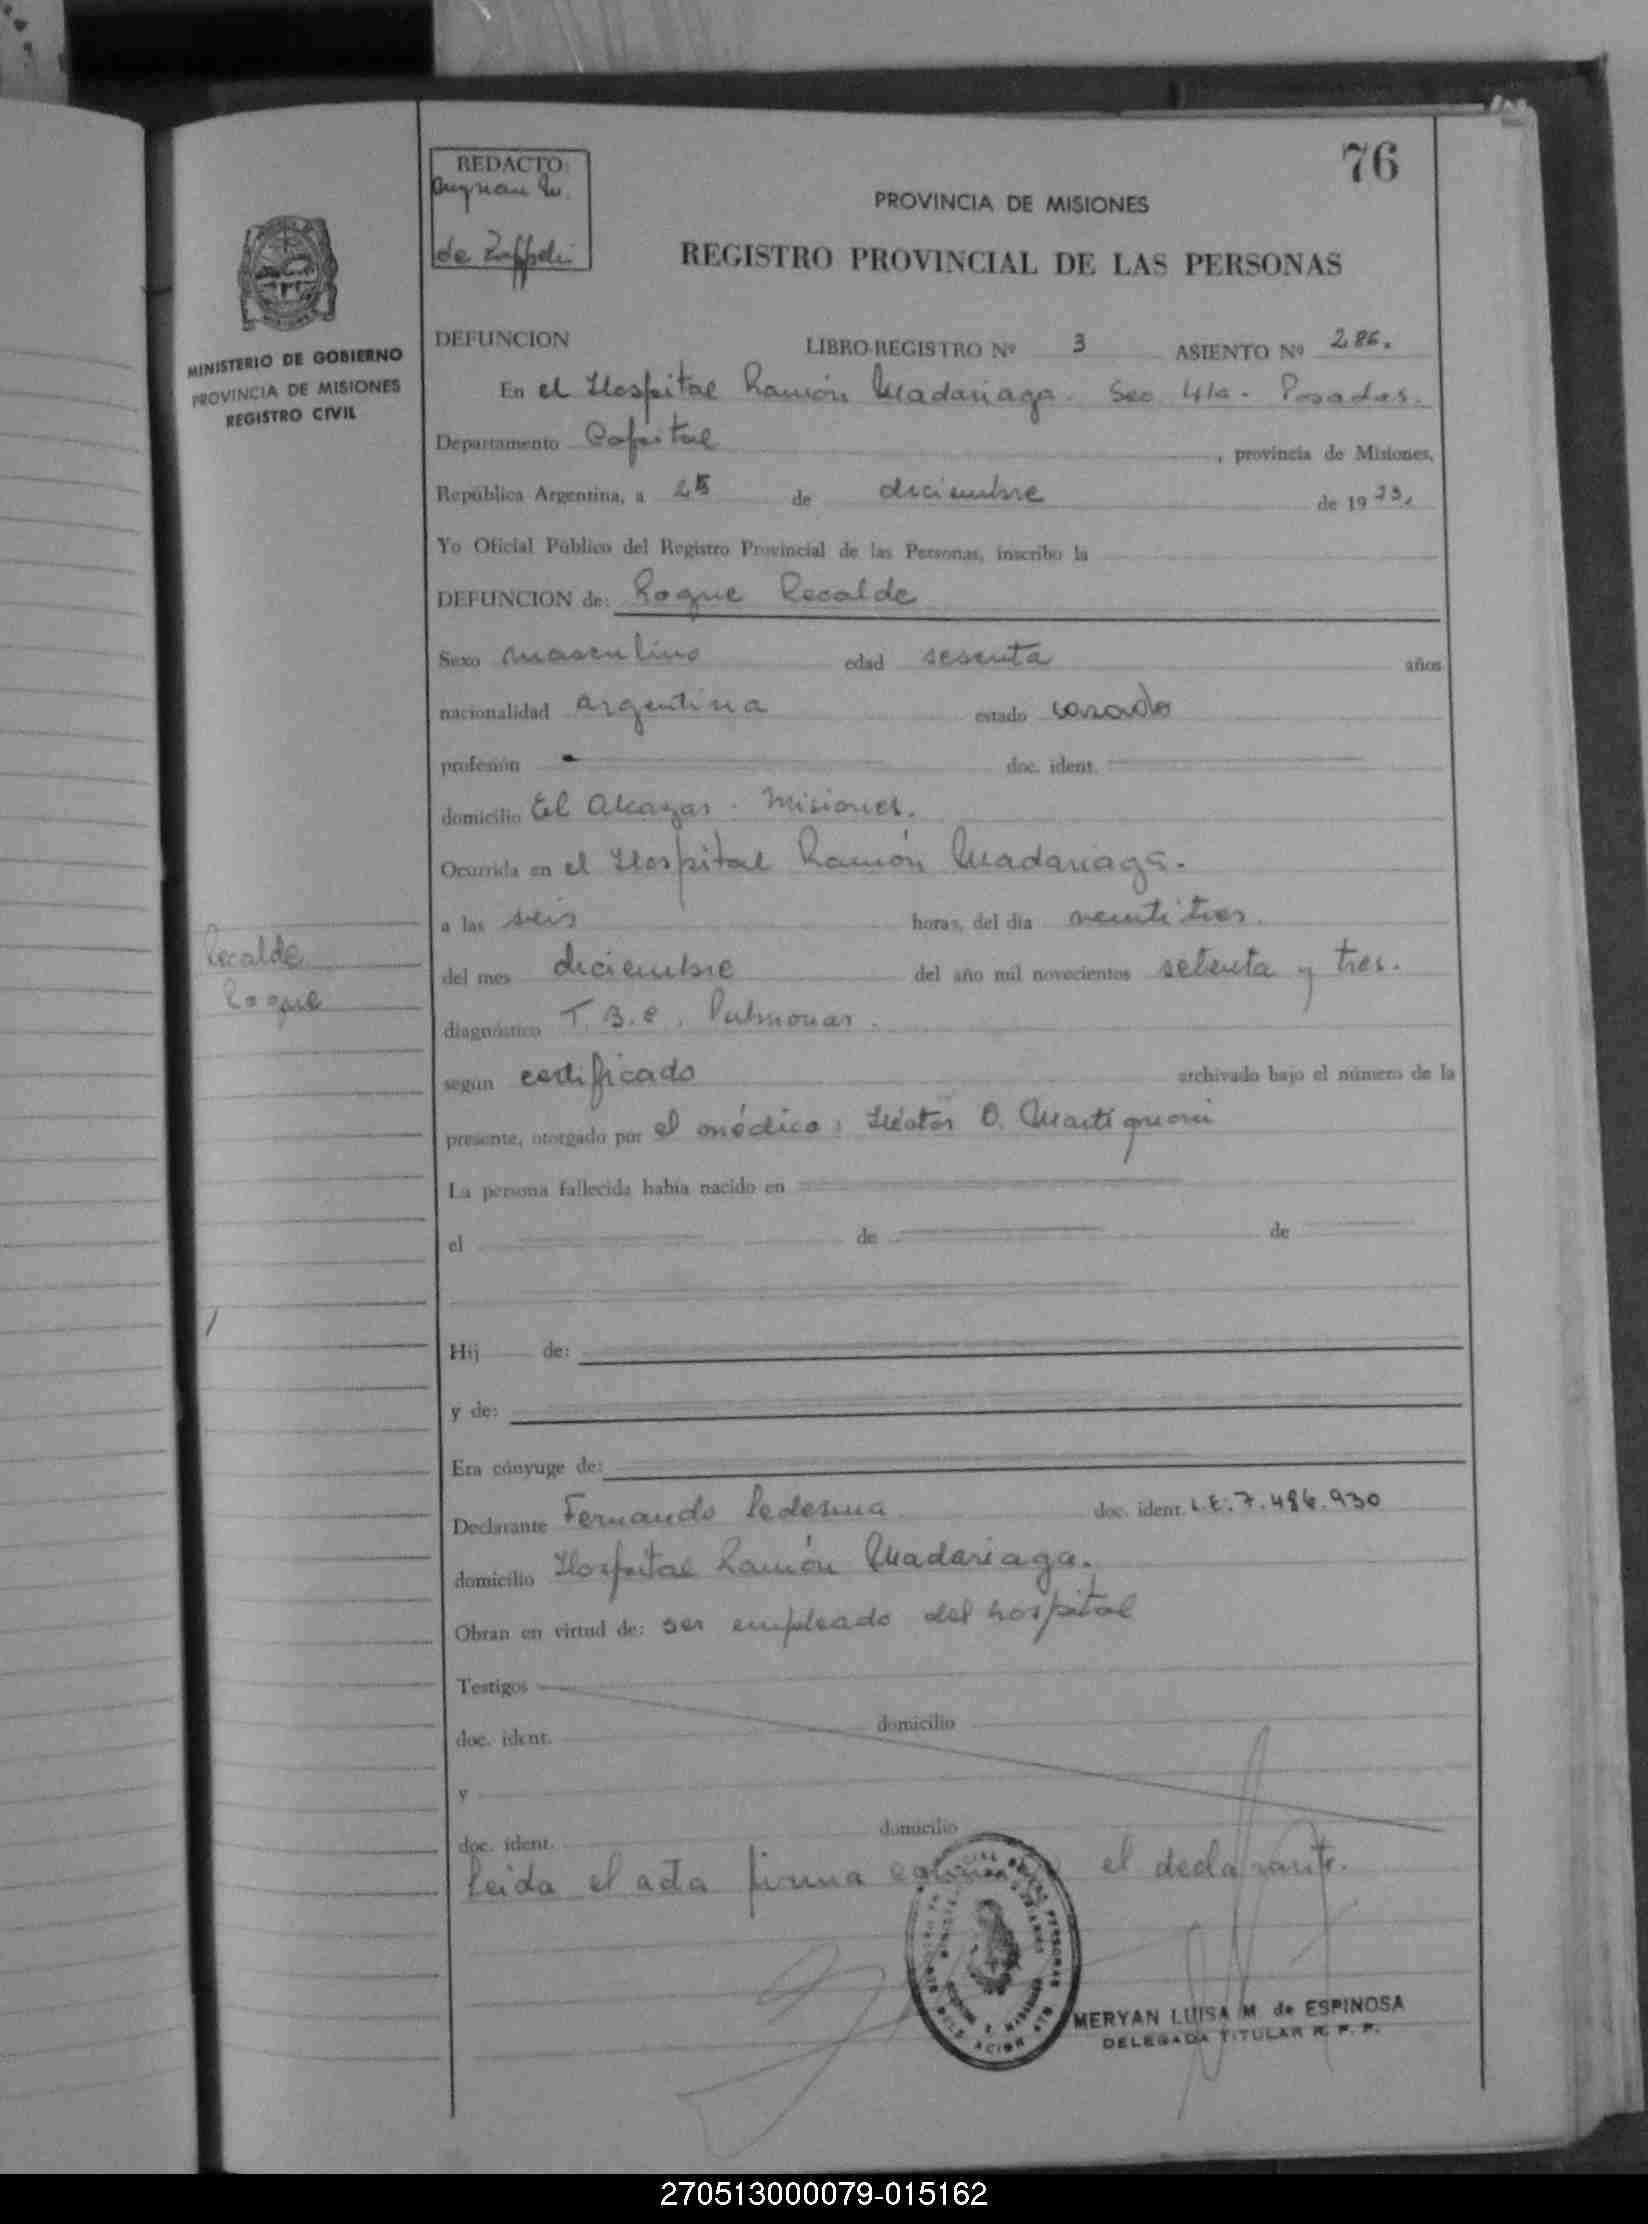 76
REDACTO:
de
PROVINCIA DE MISIONES
REGISTRO PROVINCIAL DE LAS PERSONAS
MINISTERIO DE GOBIERNO
PROVINCIA DE MISIONES
REGISTRO CIVIL
DEFUNCION LIBRO-REGISTRO Nº 3 ASIENTO Nº 286.
En el Hospital Ramón Madariaga. Sec 4ta. Posadas.
Departamento Capital, provincia de Misiones,
República Argentina, a de diciembre de 1973.
Yo Oficial Público del Registro Provincial de las Personas, inscribo la
DEFUNCION de: Roque Recalde
Sexo masculino edad sesenta años
nacionalidad argentina estado casado
profesión doc. ident.
domicilio El Alcazar. Misiones.
Ocurrida en el Hospital Ramón Madariaga.
a las seis horas, del día veintitres.
Recalde
Roque
del mes diciembre del año mil novecientos setenta y tres.
diagnóstico T.B.C. Pulmonar.
según certificado archivado bajo el número de la
presente, otorgado por el médico: Héctor O.
La persona fallecida había nacido en
el de de
Hij de:
y de:
Era cónyuge de:
Declarante Fernando Ledesma doc. ident. L.E: 7.486.930
domicilio Hospital Ramón Madariaga.
Obran en virtud de: ser empleado del hospital
Testigos
doc. ident. domicilio
y
doc. ident. domicilio
Leida el acta firma conmigo el declarante.
MERYAN LUISA M. de ESPINOSA
DELEGADA TITULAR R. P. P.
270513000079-015162